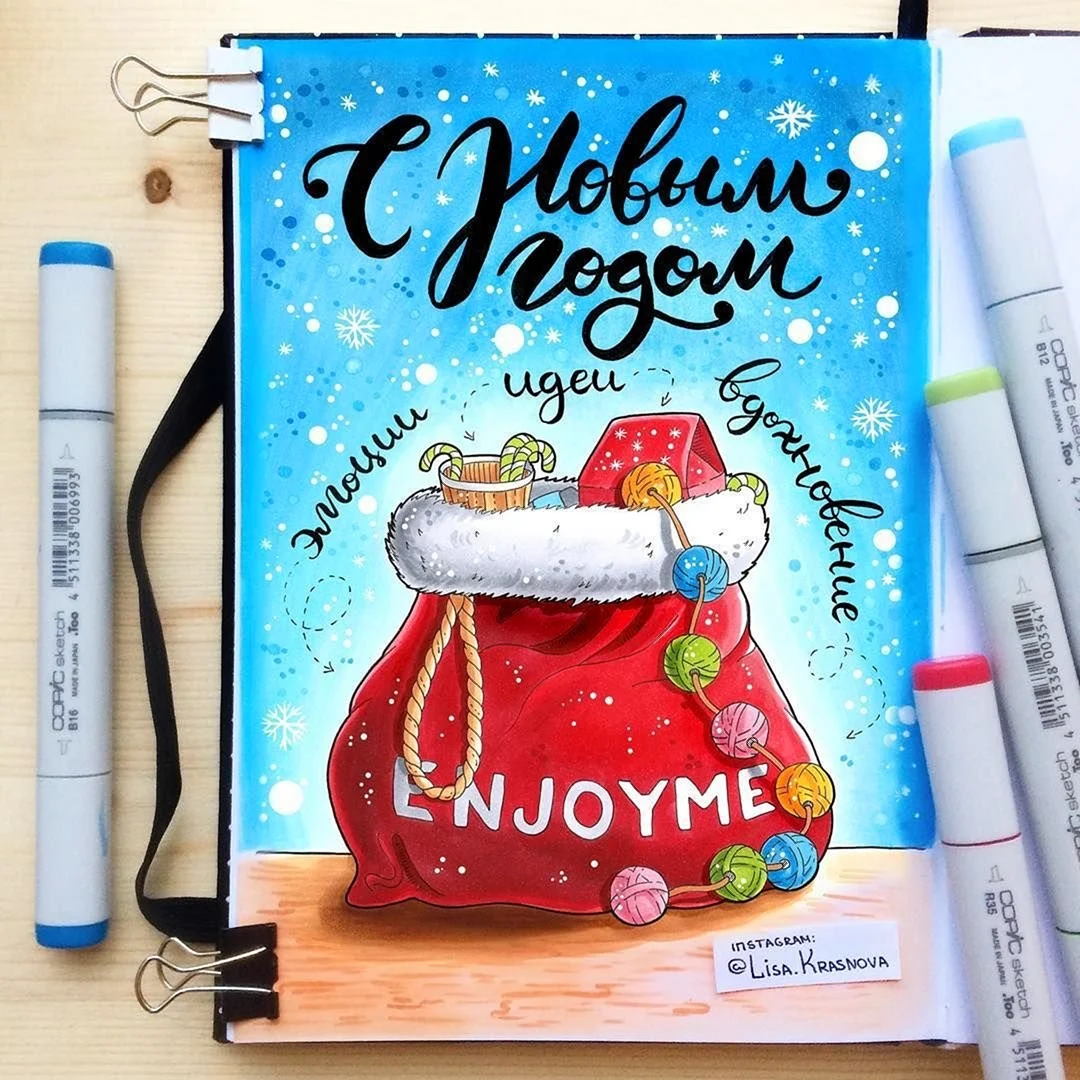 С Новым
годом
эмоции
идеи
вдохновение
ENJOYME
INSTAGRAM:
@LISA.KRASNOVA
COPIC sketch
B16
MADE IN JAPAN .Too
4 511338 006993
COPIC sketch
B12
MADE IN JAPAN .Too
COPIC sketch
.Too
4 511338 003541
COPIC sketch
R35
MADE IN JAPAN .Too